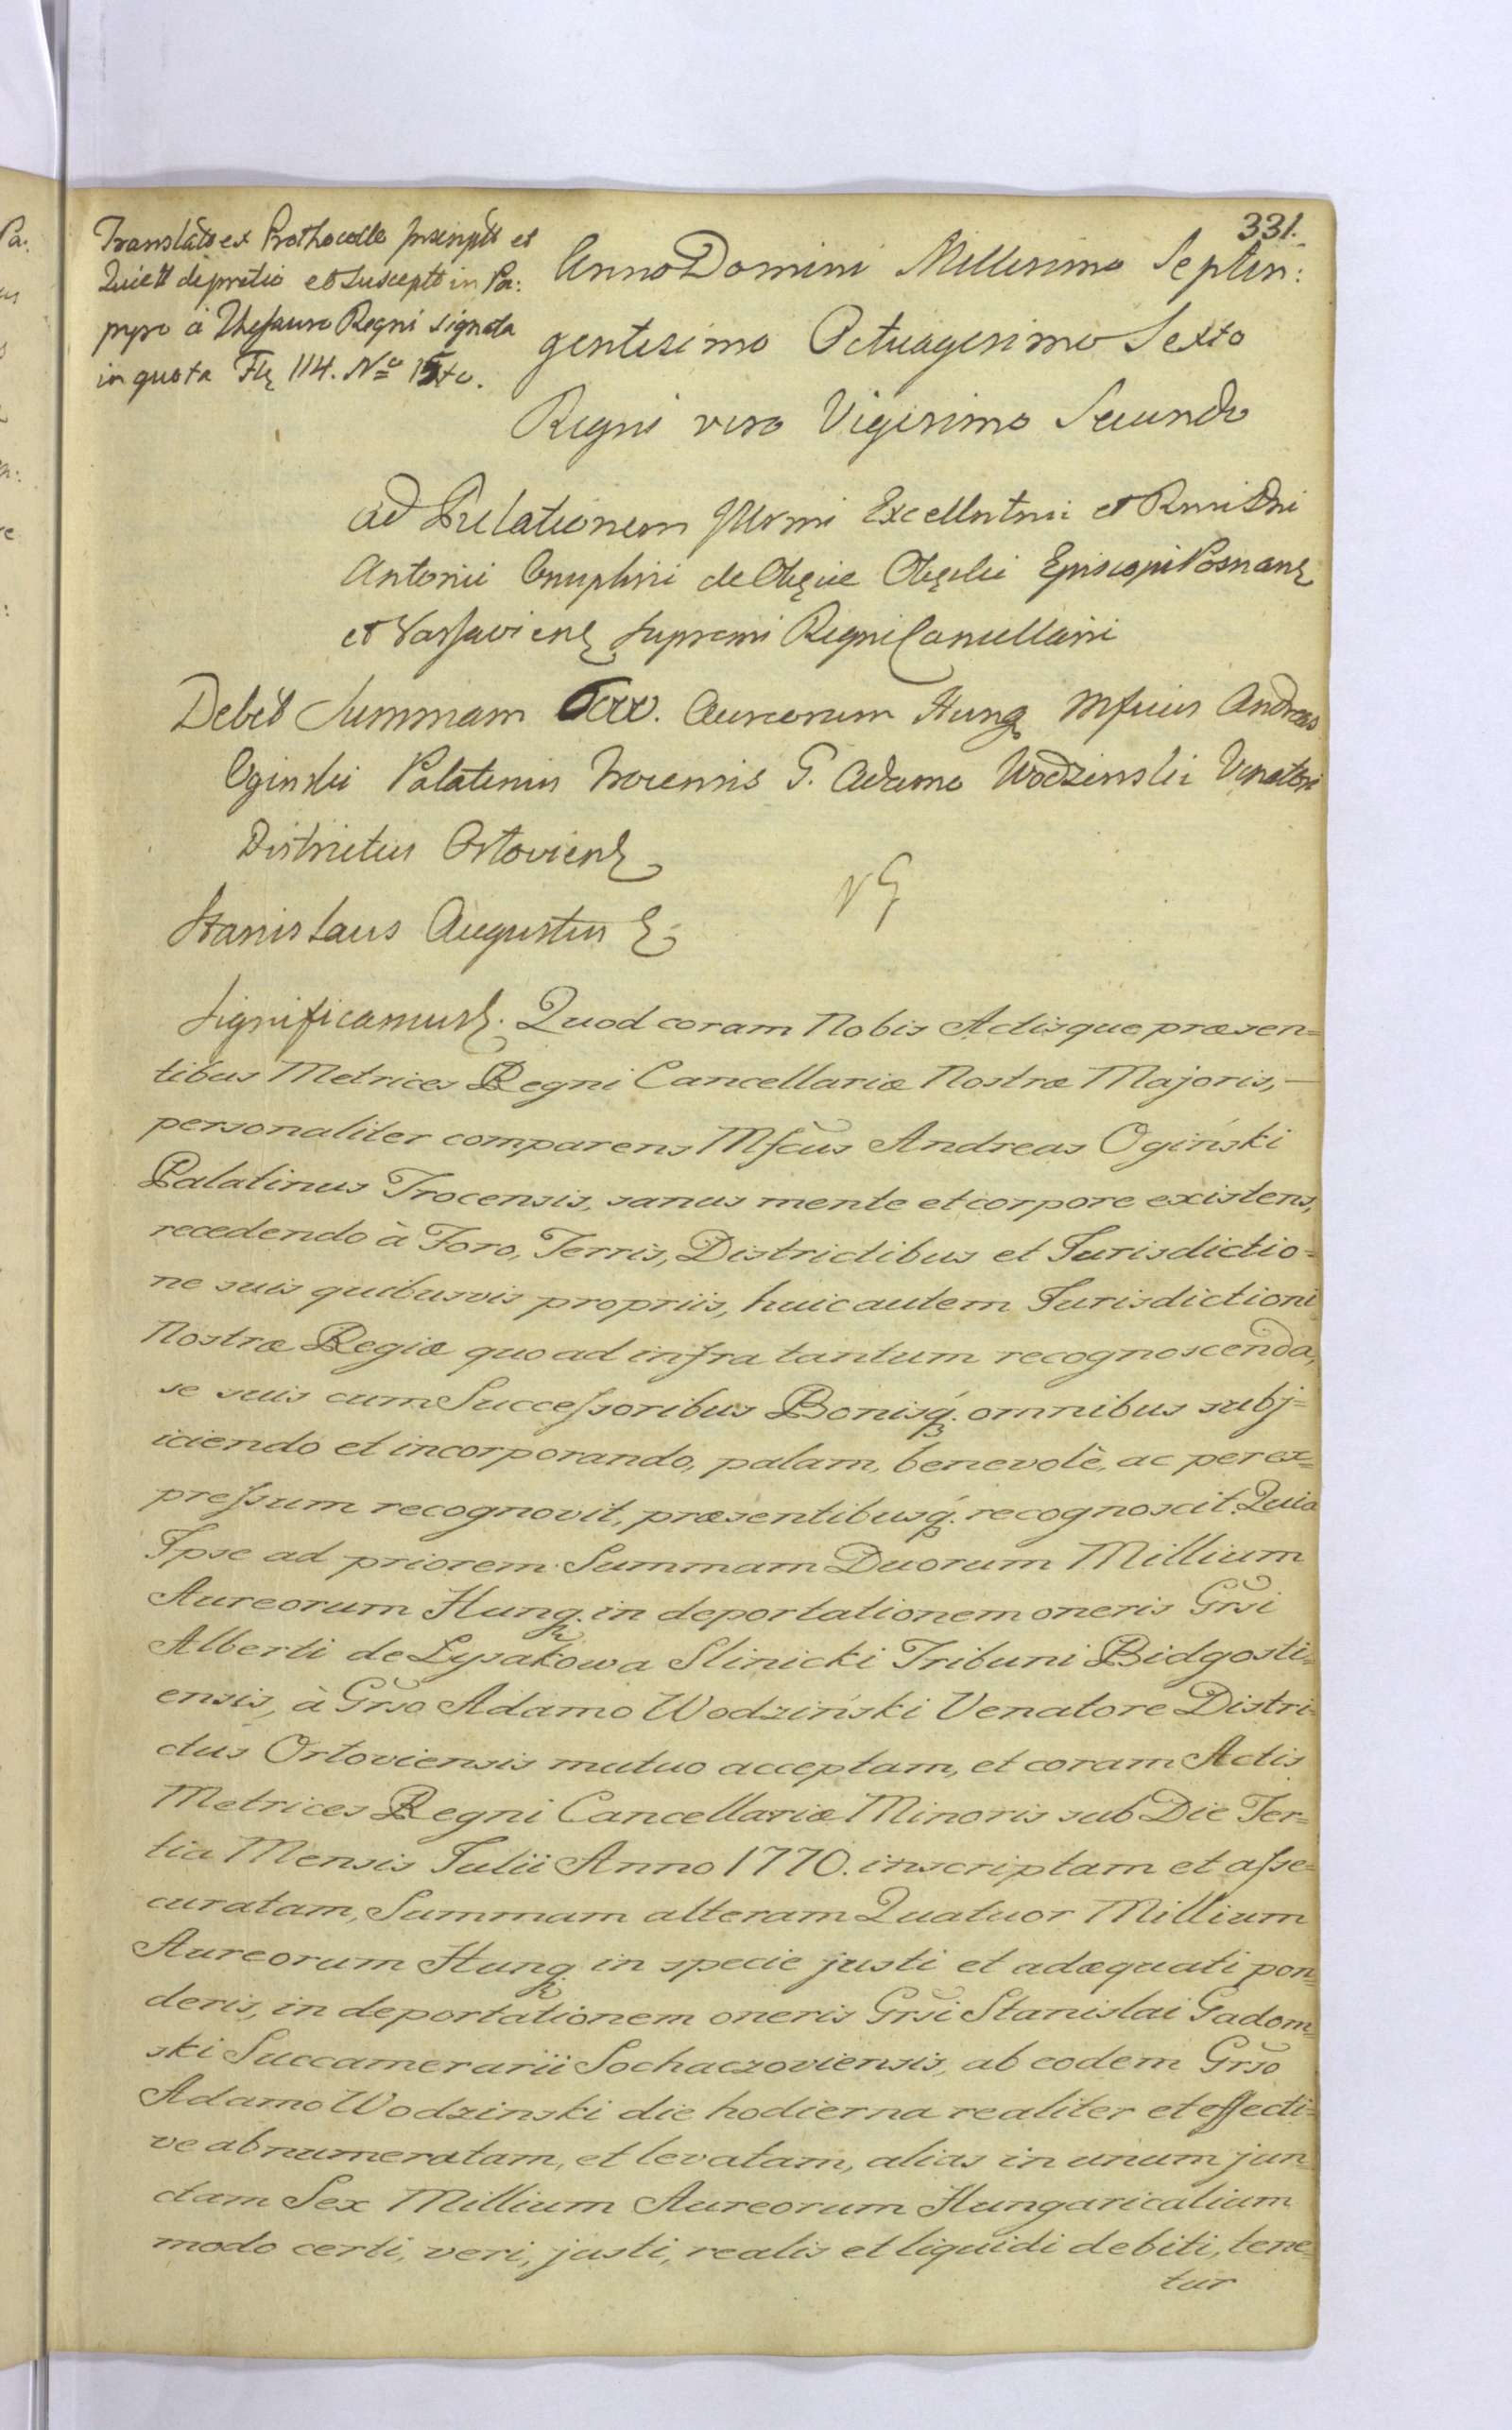 331.
Translato ex Prothocollo Inscriptt et
Quiett de pretio et Suscepto in Pa:
pyro à Thesauro Regni signata
in quota Flę 114. No 15to.
Anno Domini Millesimo Septin:
gentesimo Octuagesimo Sexto
Regni vero Vigesimo Secundo
ad Relationem Illrmi Excellntmi et Rmi Dni
Antonii Onuphrii de Okęcie Okęcki Episcopi Posnanę
et Varsavienę Supremi Regni Cancellarii
Debet Summam Aureorum Hung Mficus Andreas
Oginski Palatinus Trocensis G. Adamo Wodzinski Venatori
Districtus Ortovienę
Stanislaus Augustus ę
Significamusę. Quod coram Nobis Actisque præsen=
tibus Metrices Regni Cancellariæ Nostræ Majoris, —
personaliter comparens Mfcus Andreas Ogiński
Palatinus Trocensis, sanus mente et corpore existens,
recedendo à Foro, Terris, Districtibus et Jurisdictio=
ne suis quibusvis propriis, huic autem Jurisdictioni
Nostræ Regiæ quo ad infra tantum recognoscenda,
se suis cum Successoribus Bonisq. omnibus subj=
iciendo et incorporando, palam, benevolè, ac per ex=
pressum recognovit, præsentibusq. recognoscit. Quia
Ipse ad priorem Summam Duorum Millium
Aureorum Hung. in deportationem oneris Grsi
Alberti de Lysakowa Slinicki Tribuni Bidgosti=
ensis, à Grso Adamo Wodziński Venatore Distri=
ctus Ortoviensis mutuo acceptam, et coram Actis
Metrices Regni Cancellariæ Minoris sub Die Ter=
tia Mensis Julii Anno 1770. inscriptam et asse=
curatam, Summam alteram Quatuor Millium
Aureorum Hung in specie justi et adæquati pon=
deris, in deportationem oneris Grsi Stanislai Gadom=
ski Succamerarii Sochaczoviensis, ab eodem Grso
Adamo Wodzinski die hodierna realiter et effecti=
ve abnumeratam, et levatam, alias in unum jun=
ctam Sex Millium Aureorum Hungaricalium
modo certi, veri, justi, realis et liquidi debiti, tene=
tur